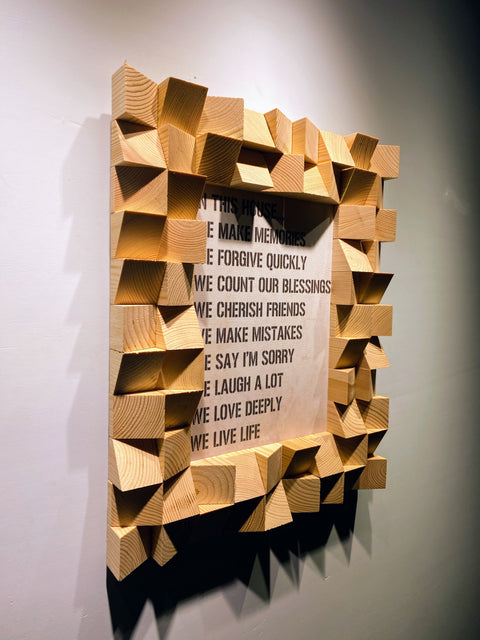 N THIS HOUSE...
E MAKE MEMORIES
E FORGIVE QUICKLY
WE COUNT OUR BLESSINGS
WE CHERISH FRIENDS
WE MAKE MISTAKES
E SAY I'M SORRY
E LAUGH A LOT
WE LOVE DEEPLY
WE LIVE LIFE